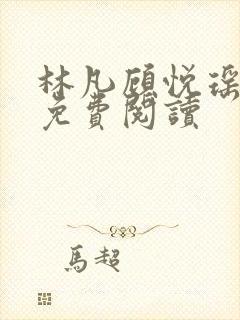 林凡顾悦瑶
免費閱讀
馬超